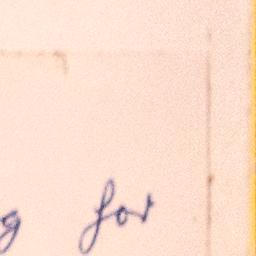 g for